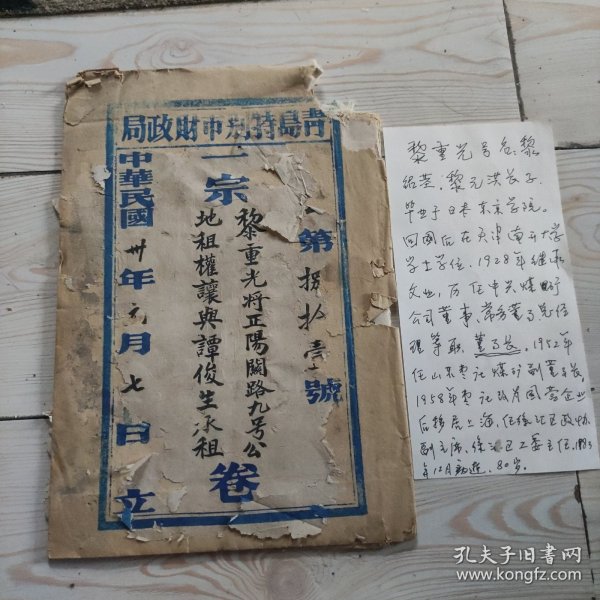 青島特別市財政局
第捌拾壹號
一宗
黎重光將正陽關路九号公
地租權讓與譚俊生承租
卷
中華民國卅年元月七日立
黎重光号名:黎
绍基,黎元洪长子
毕业于日本东京学院。
回国后在天津南开大学
学士学位,1928年继承
父业,历任中兴煤矿
公司董事,常务董事总经
理等职,董事长。1952年
任山东枣庄煤矿副董事长
1958年枣庄改为国营企业
后移居上海,任徐汇区政协
副主席,徐汇区工委主任,1983
年12月病逝,80岁。
孔夫子旧书网
www.kongfz.com